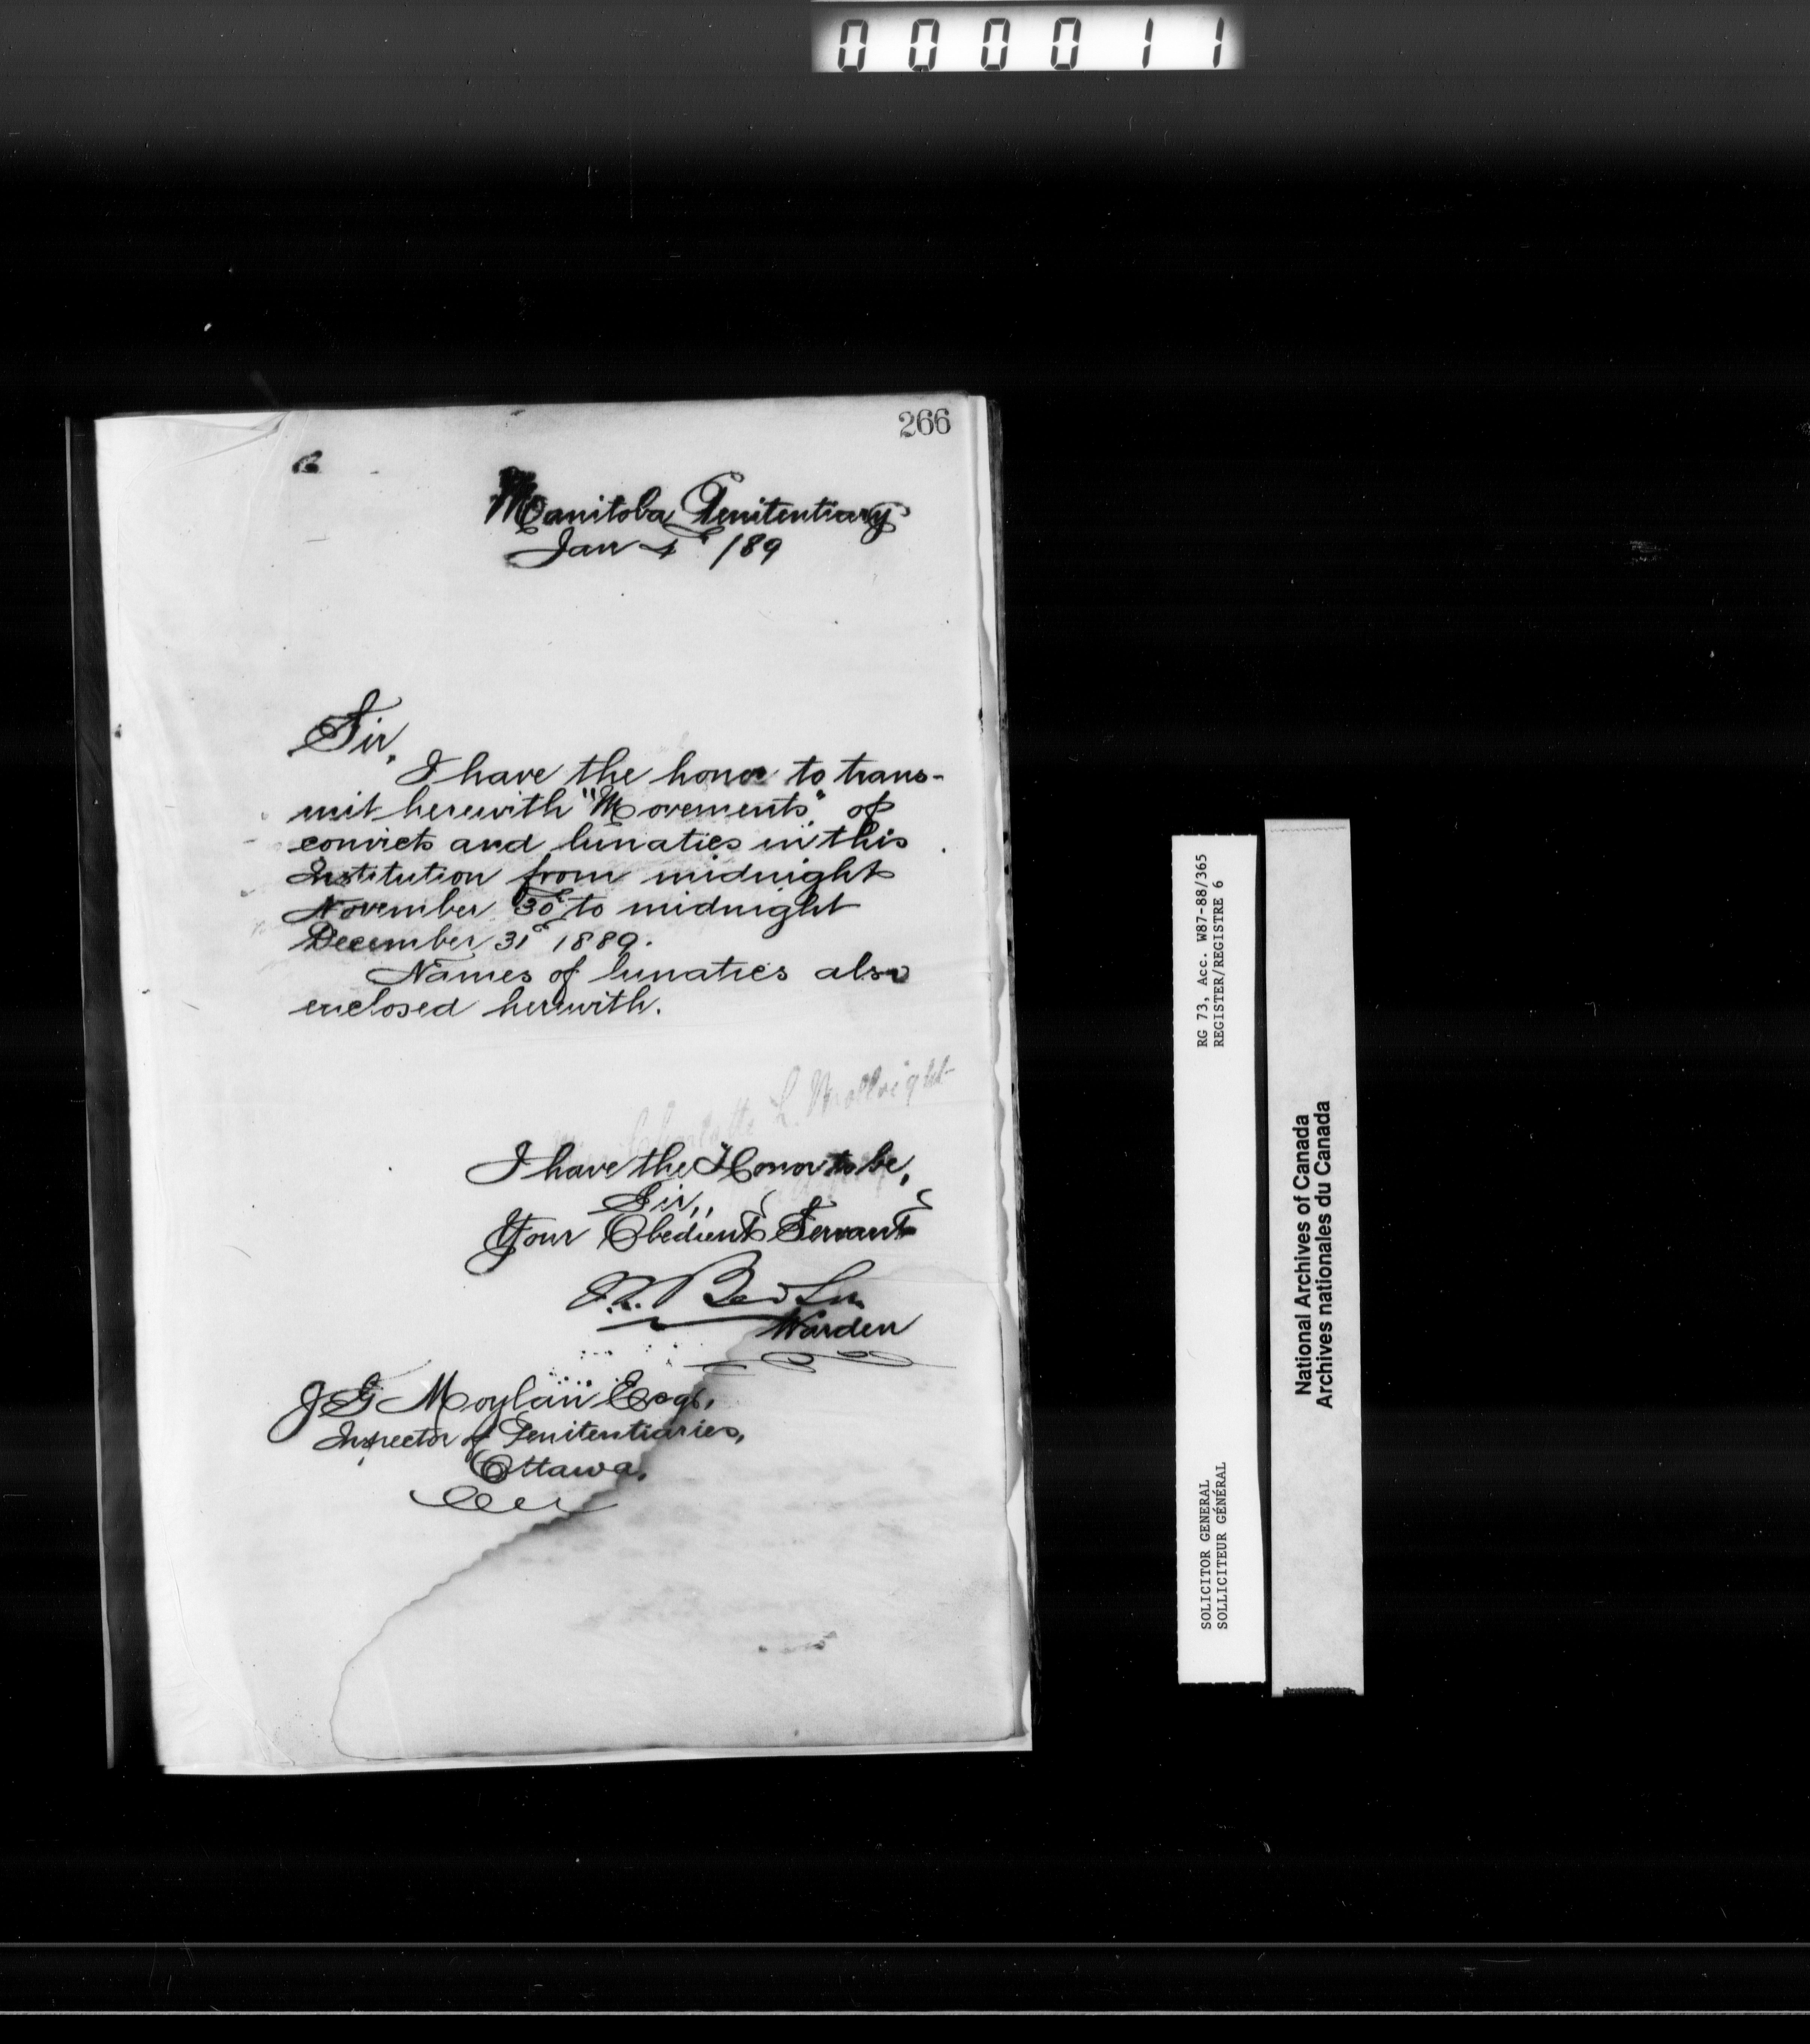 000011
266
Manitoba Penitentiary
Jan 4th /89
Sir,
I have the honor to trans-
mit herewith "Movements" of
convicts and lunatics in this
Institution from midnight
November 30th to midnight
December 31st 1889.
Names of lunatics also
enclosed herewith.
I have the Honor to be,
Sir,
Your Obedient Servant
Warden
J G Moylan Esqr,
Inspector of Penitentiaries,
Ottawa.
RG 73, Acc. W87-88/365
REGISTER/REGISTRE 6
SOLICITOR GENERAL
SOLLICITEUR GÉNÉRAL
National Archives of Canada
Archives nationales du Canada